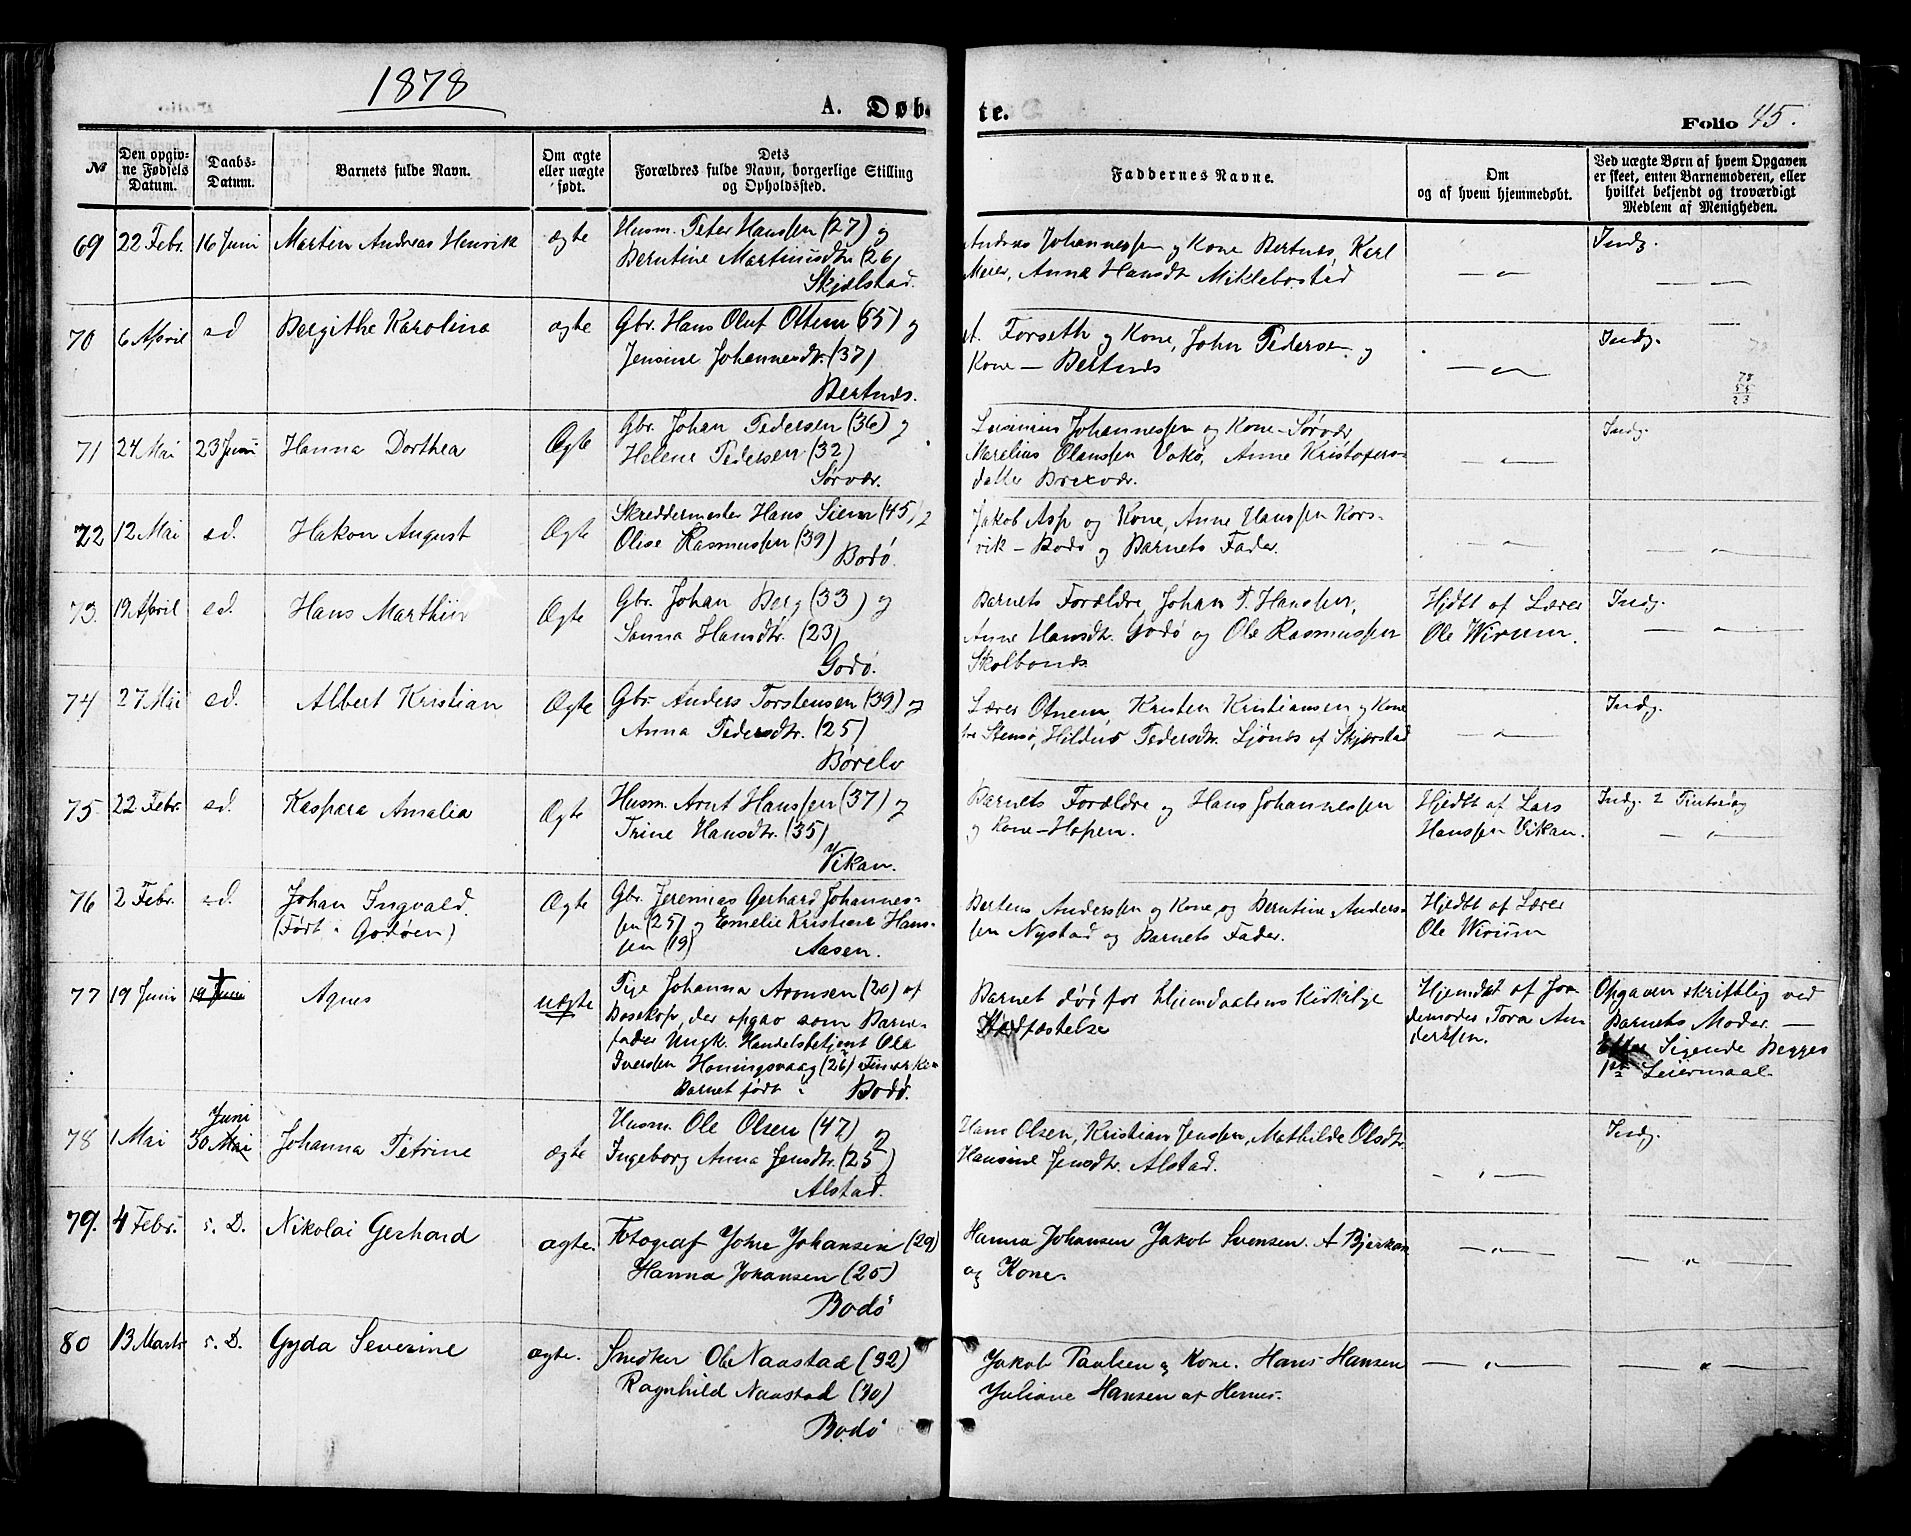 1878
A. Døb-
te.
Folio 45.
№
Den opgiv-
ne Fødsels
Datum.
Daabs-
Datum.
Barnets fulde Navn.
Om ægte
eller uægte
født.
Dets
Forældres fulde Navn, borgerlige Stilling
og Opholdssted.
Faddernes Navne.
Om
og af hvem hjemmedøbt.
Ved uægte Børn af hvem Opgaven
er skeet, enten Barnemoderen, eller
hvilket bekjendt og troværdigt
Medlem af Menigheden.
69 22 Febr. 16 Juni Martin Andreas Henrik ægte
Husm. Peter Hanssen (27) og
Berntine Martinusdtr (26)
Skjælstad.
Andreas Johannessen og Kone Bertnes, Karl
Meier, Anna Hansdtr Miklebostad
— " —
Indg.
— " —
70 6 April s d Bergithe Karolina ægte
Gbr. Hans Oluf Ottem (55) og
Jensine Johannesdtr. (37)
Bertnes.
A. Forseth og Kone, John Pedersen og
Kone — Bertnes
— " —
Indg.
78
55
23
71 24 Mai 23 Juni Hanna Dorthea Ægte
Gbr. Johan Pedersen (36) og
Helene Pedersen (32)
Sørvær.
Johannessen og Kone - Sørvær,
Marelius Olaussen Vokø, Anne Kristofers-
datter Brexvær.
— " —
Indg.
72 12 Mai sd. Hakon August Ægte
Skreddermester Hans Siem (45) og
Olise Rasmussen (39)
Bodø.
Jakob Asp og Kone, Anne Hanssen Kors-
vik — Bodø og Barnets Fader.
— " —
— " —
73. 19 April sd. Hans Marthin Ægte
Gbr. Johan Berg (33) og
Sanna Hansdtr. (23)
Godø.
Barnets Forældre, Johan P. Hanssen,
Anne Hansdtr. Godø og Ole Rasmussen
Skolbones.
Hjdbt af Lærer
Ole Wirum.
Indg.
— " —
74 27 Mai sd. Albert Kristian Ægte
Gbr. Anders Torstensen (39) og
Anna Pedersdtr. (25)
Børelv
Lærer Otnem, Kristen Kristiansen og Kone
Stensø, Hildur Pedersdtr. Ljønes af Skjerstad
— " —
Indg.
75. 22 Febr. sd. Kaspara Amalia Ægte
Husm. Arnt Hanssen (37) og
Trine Hansdtr. (35)
Vikan.
Barnets Forældre og Hans Johannessen
og Kone - Hopen.
Hjedbt af Lars
Hanssen Vikan.
Indg. 2
— " —
76 2 Febr. sd. Johan Ingvald.
(Født i Godøen)
Ægte
Gbr. Jeremias Gerhard Johannes-
sen (25) og Emelie Kristine Hans-
sen (19) Aasen.
Bertens Anderssen og Kone, og Berntine Anders-
sen Nystad og Barnets Fader.
Hjedbt af Lærer
Ole Wirum
77 19 Juni 19 Juni Agnes uægte
Pige Johanna Aronsen (20) af
Bosekop, der opgav som Barne-
fader Ungk. Handelsbetjent Ole
Iverssen Honingsvaag (26) Finmarken
Barnet født i Bodø.
Barnet døde før Hjemdaabens kirkelige
Stadfæstelse
Hjemdbt af Jor-
demoder Tora An-
derssen.
Opgaven skriftlig ved
Barnets Moder. —
Efter Sigende Begges
1ste Leiermaal.
78 1 Mai Juni
30 Mai Johanna Petrine ægte
Husm. Ole Olsen (47) og
Ingeborg Anna Jensdtr. (25)
Alstad.
Hans Olsen, Kristian Jenssen, Mathilde Olsdtr.
Hansine Jensdtr. Alstad.
— " —
Indg.
79. 4 Febr. s. D. Nikolai Gerhard ægte.
Fotograf John Johansen (29)
Hanna Johansen (25)
Bodø
Hanna Johansen Jakob Svensen. A Bjerkan
og Kone.
— " —
— " —
80 13 Marts s. D. Gyda Severine ægte.
Snedker Ole Naastad (32)
Ragnhild Naastad (30)
Bodø
Jakob Paulsen og Kone. Hans Hansen
Juliane Hansen af Hernes.
— " —
— " —